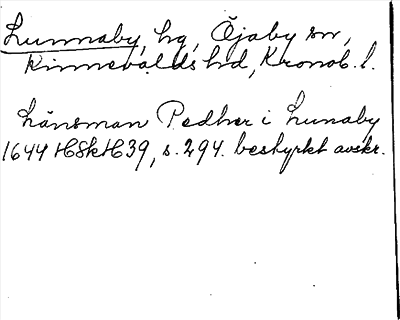 Lunnaby, hg, Öjaby sn,
Kinnevalds hd, Kronob. l.
Länsman Pedher i Lunaby
1644 HSkH 39, s. 294. beskyrkt avskr.